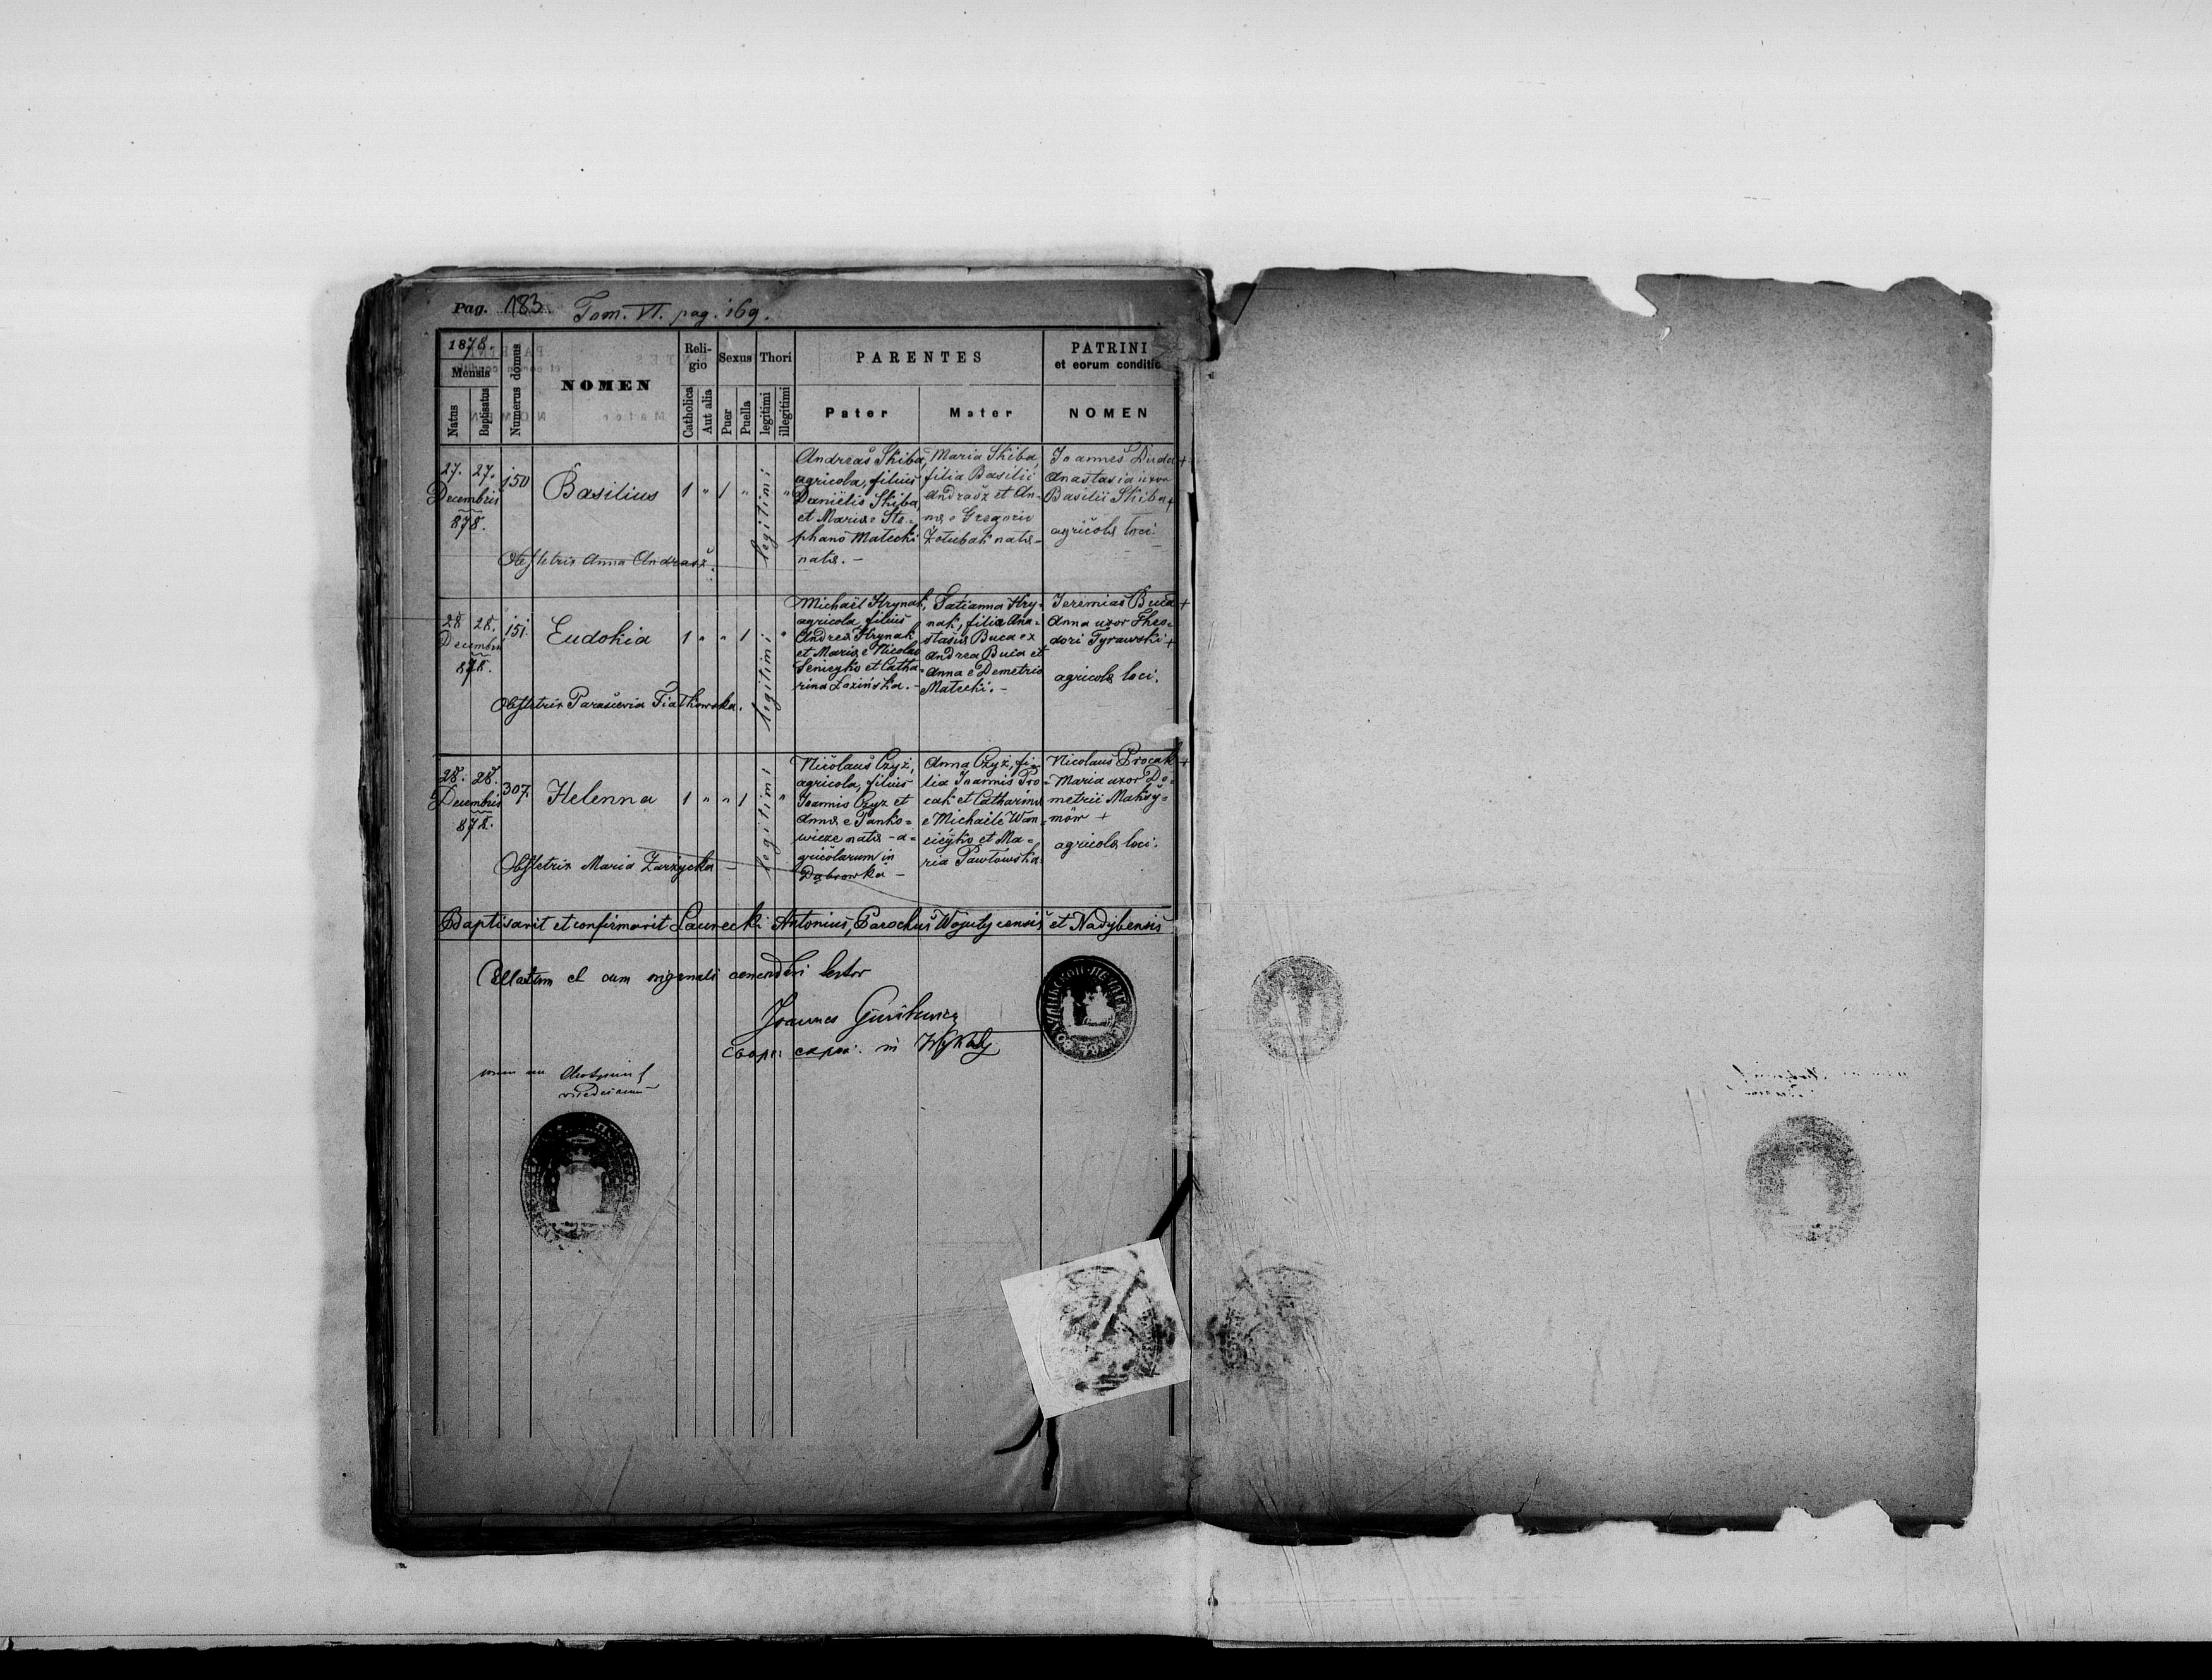 Pag. 183. Tom. VI. pag. 169.
1878.
Mensis
Natus
Baptisatus
Numerus domus
NOMEN
Reli-
gio
Catholica
Aut alia
Sexus
Puer
Puella
Thori
legitimi
illegitimi
PARENTES
Pater
Mater
PATRINI
et eorum conditio
NOMEN
27. 27.
Decembris
878.
150
Basilius
1 " 1 "
legitimi
"
Andreas Skiba,
agricola, filius
Danielis Skiba,
et Mariæ e Ste-
phano Matecki
natæ. -
Maria Skiba,
filia Basilii
Andrasz et An-
næ e Gregorio
natæ -
Joannes Duda +
Anastasia uxor
Basilii Skiba +
agricolæ loci.
Obstetrix Anna Andrasz.
28 28.
Decembris
878.
151.
Eudokia
1 " " 1
legitimi
"
Michaël Hrynak,
agricola, filius
Andreæ Hrynak
et Mariæ e Nicolao
Seniczko et Catha-
rina Łozińska. -
Tatianna Hry-
nak, filia Ana-
stasiæ Buca ex
Andrea Buca et
Anna e Demetrio
Matecki. -
Jeremias Buca +
Anna uxor Theo-
dori Tyrawski +
agricolæ loci.
Obstetrix Parascevia Fiatkowska.
28. 28.
Decembris
878.
307.
Helenna
1 " " 1
legitimi
"
Nicolaus Czyż,
agricola, filius
Joannis Czyz et
Annæ e Panko-
wicze natæ - a-
gricolarum in
Dąbrowka -
Anna Czyż, fi-
lia Joannis Pro-
cak et Catharinæ
e Michaële Wan-
cicyko et Ma-
ria Pawtowska
Nicolaus Procak +
Maria uxor De-
metrii Maksy-
mow +
agricolæ loci.
Obstetrix Maria Zarzycka -
Baptisavit et confirmavit Lawrecki Antonius, Parochus Wojutycensis et Nadybensis
Collatum et cum originali
Joannes
Coope: expos: in